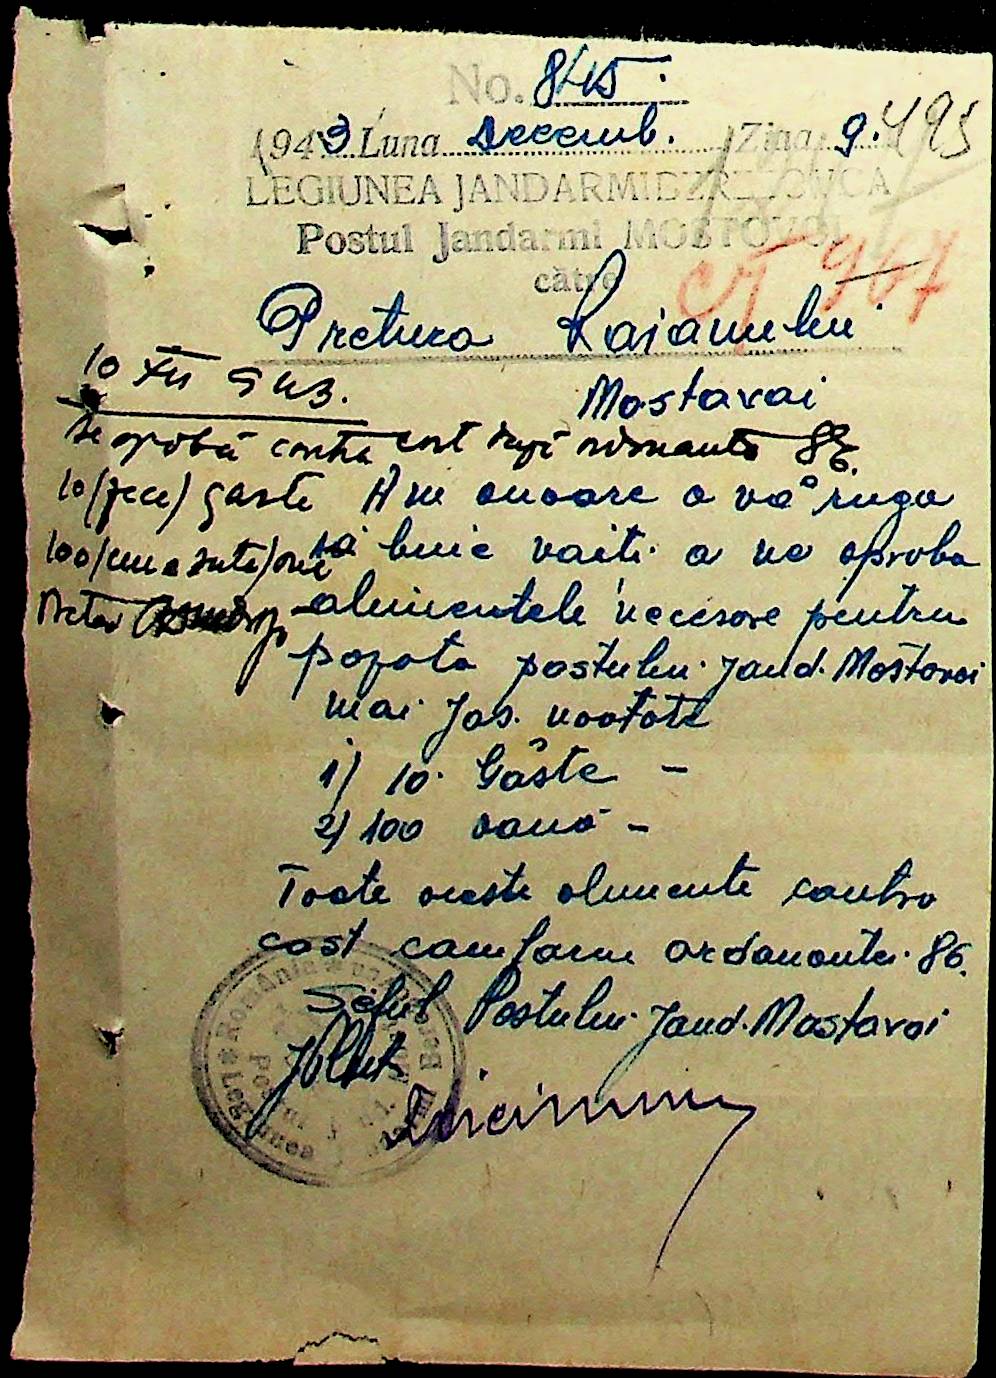 No. 845.
1943 Luna Decemb. Ziua 9. 495
LEGIUNEA JANDARMI BEREZOVCA
Postul Jandarmi MOSTOVOI
către
967
Pretura Raianului
Mostavai
10 XII 943.
Se aprobă contra cost după ordonanta 86.
10 (zece) gaste
100 /una sute/ oue
Pretor
Am onoare a vă ruga
să buie vaiti a ne aproba
alimentele necesare pentru
popota postului Jand. Mostovoi
mai jos. nootate
1) 10. Gâste -
2) 100 oauă -
Toate aceste alimente contra
cost comform ordonantei 86.
Șeful Postului Jand. Mastavai
România
Legiunea
Postul